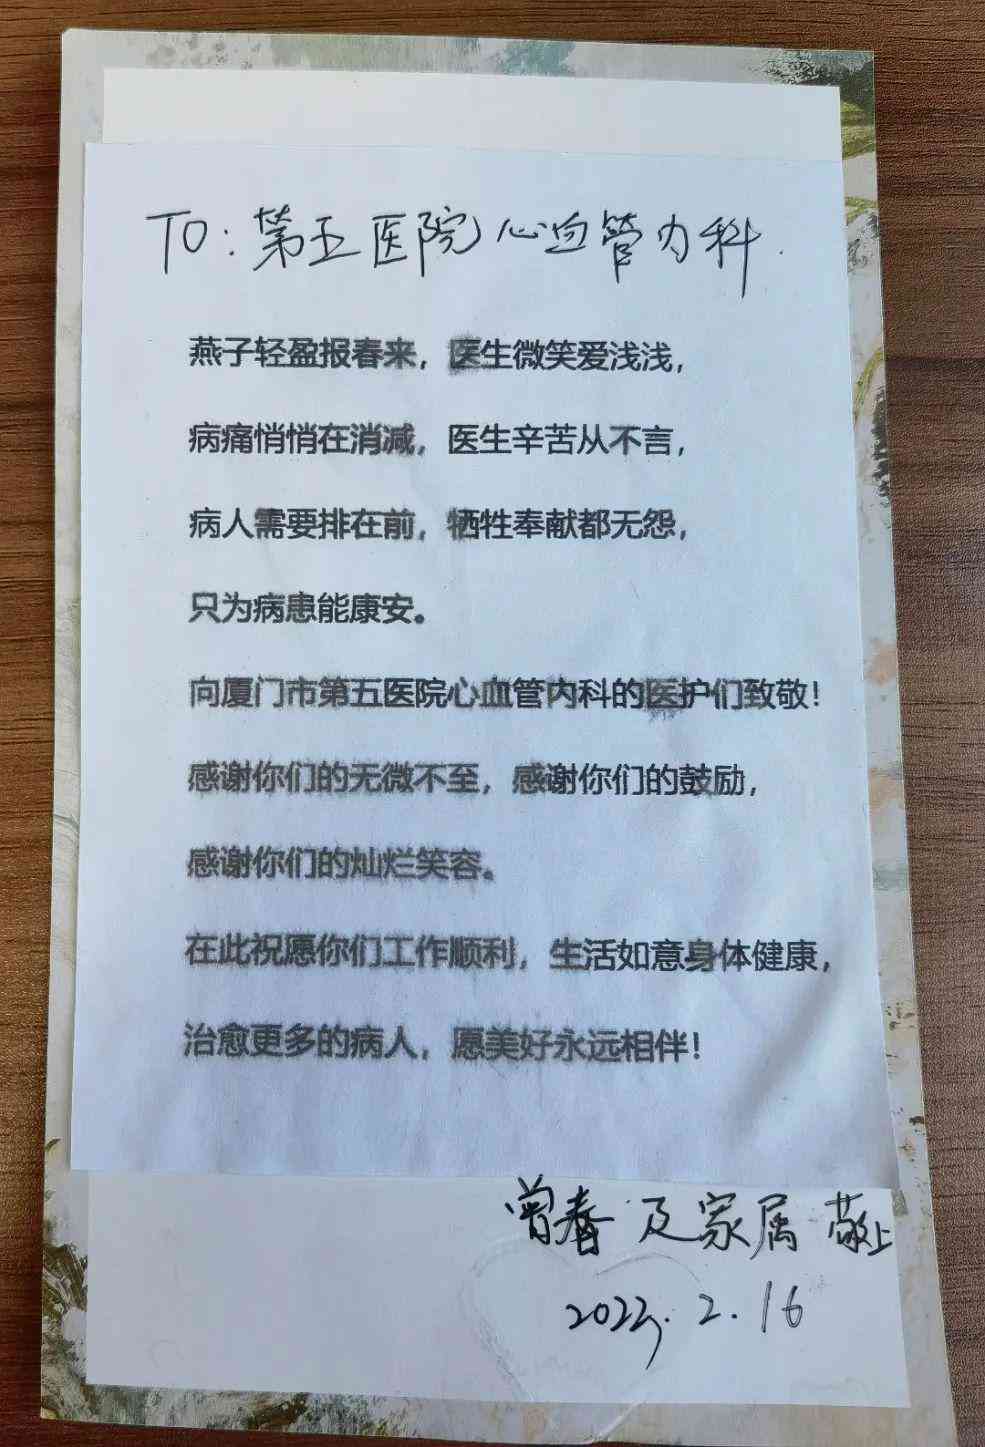 TO：第五医院心血管内科.
燕子轻盈报春来，医生微笑爱浅浅，
病痛悄悄在消减，医生辛苦从不言，
病人需要排在前，牺牲奉献都无怨，
只为病患能康安。
向厦门市第五医院心血管内科的医护们致敬！
感谢你们的无微不至，感谢你们的鼓励，
感谢你们的灿烂笑容。
在此祝愿你们工作顺利，生活如意身体健康，
治愈更多的病人，愿美好永远相伴！
曾春 及家属 敬上
2.16